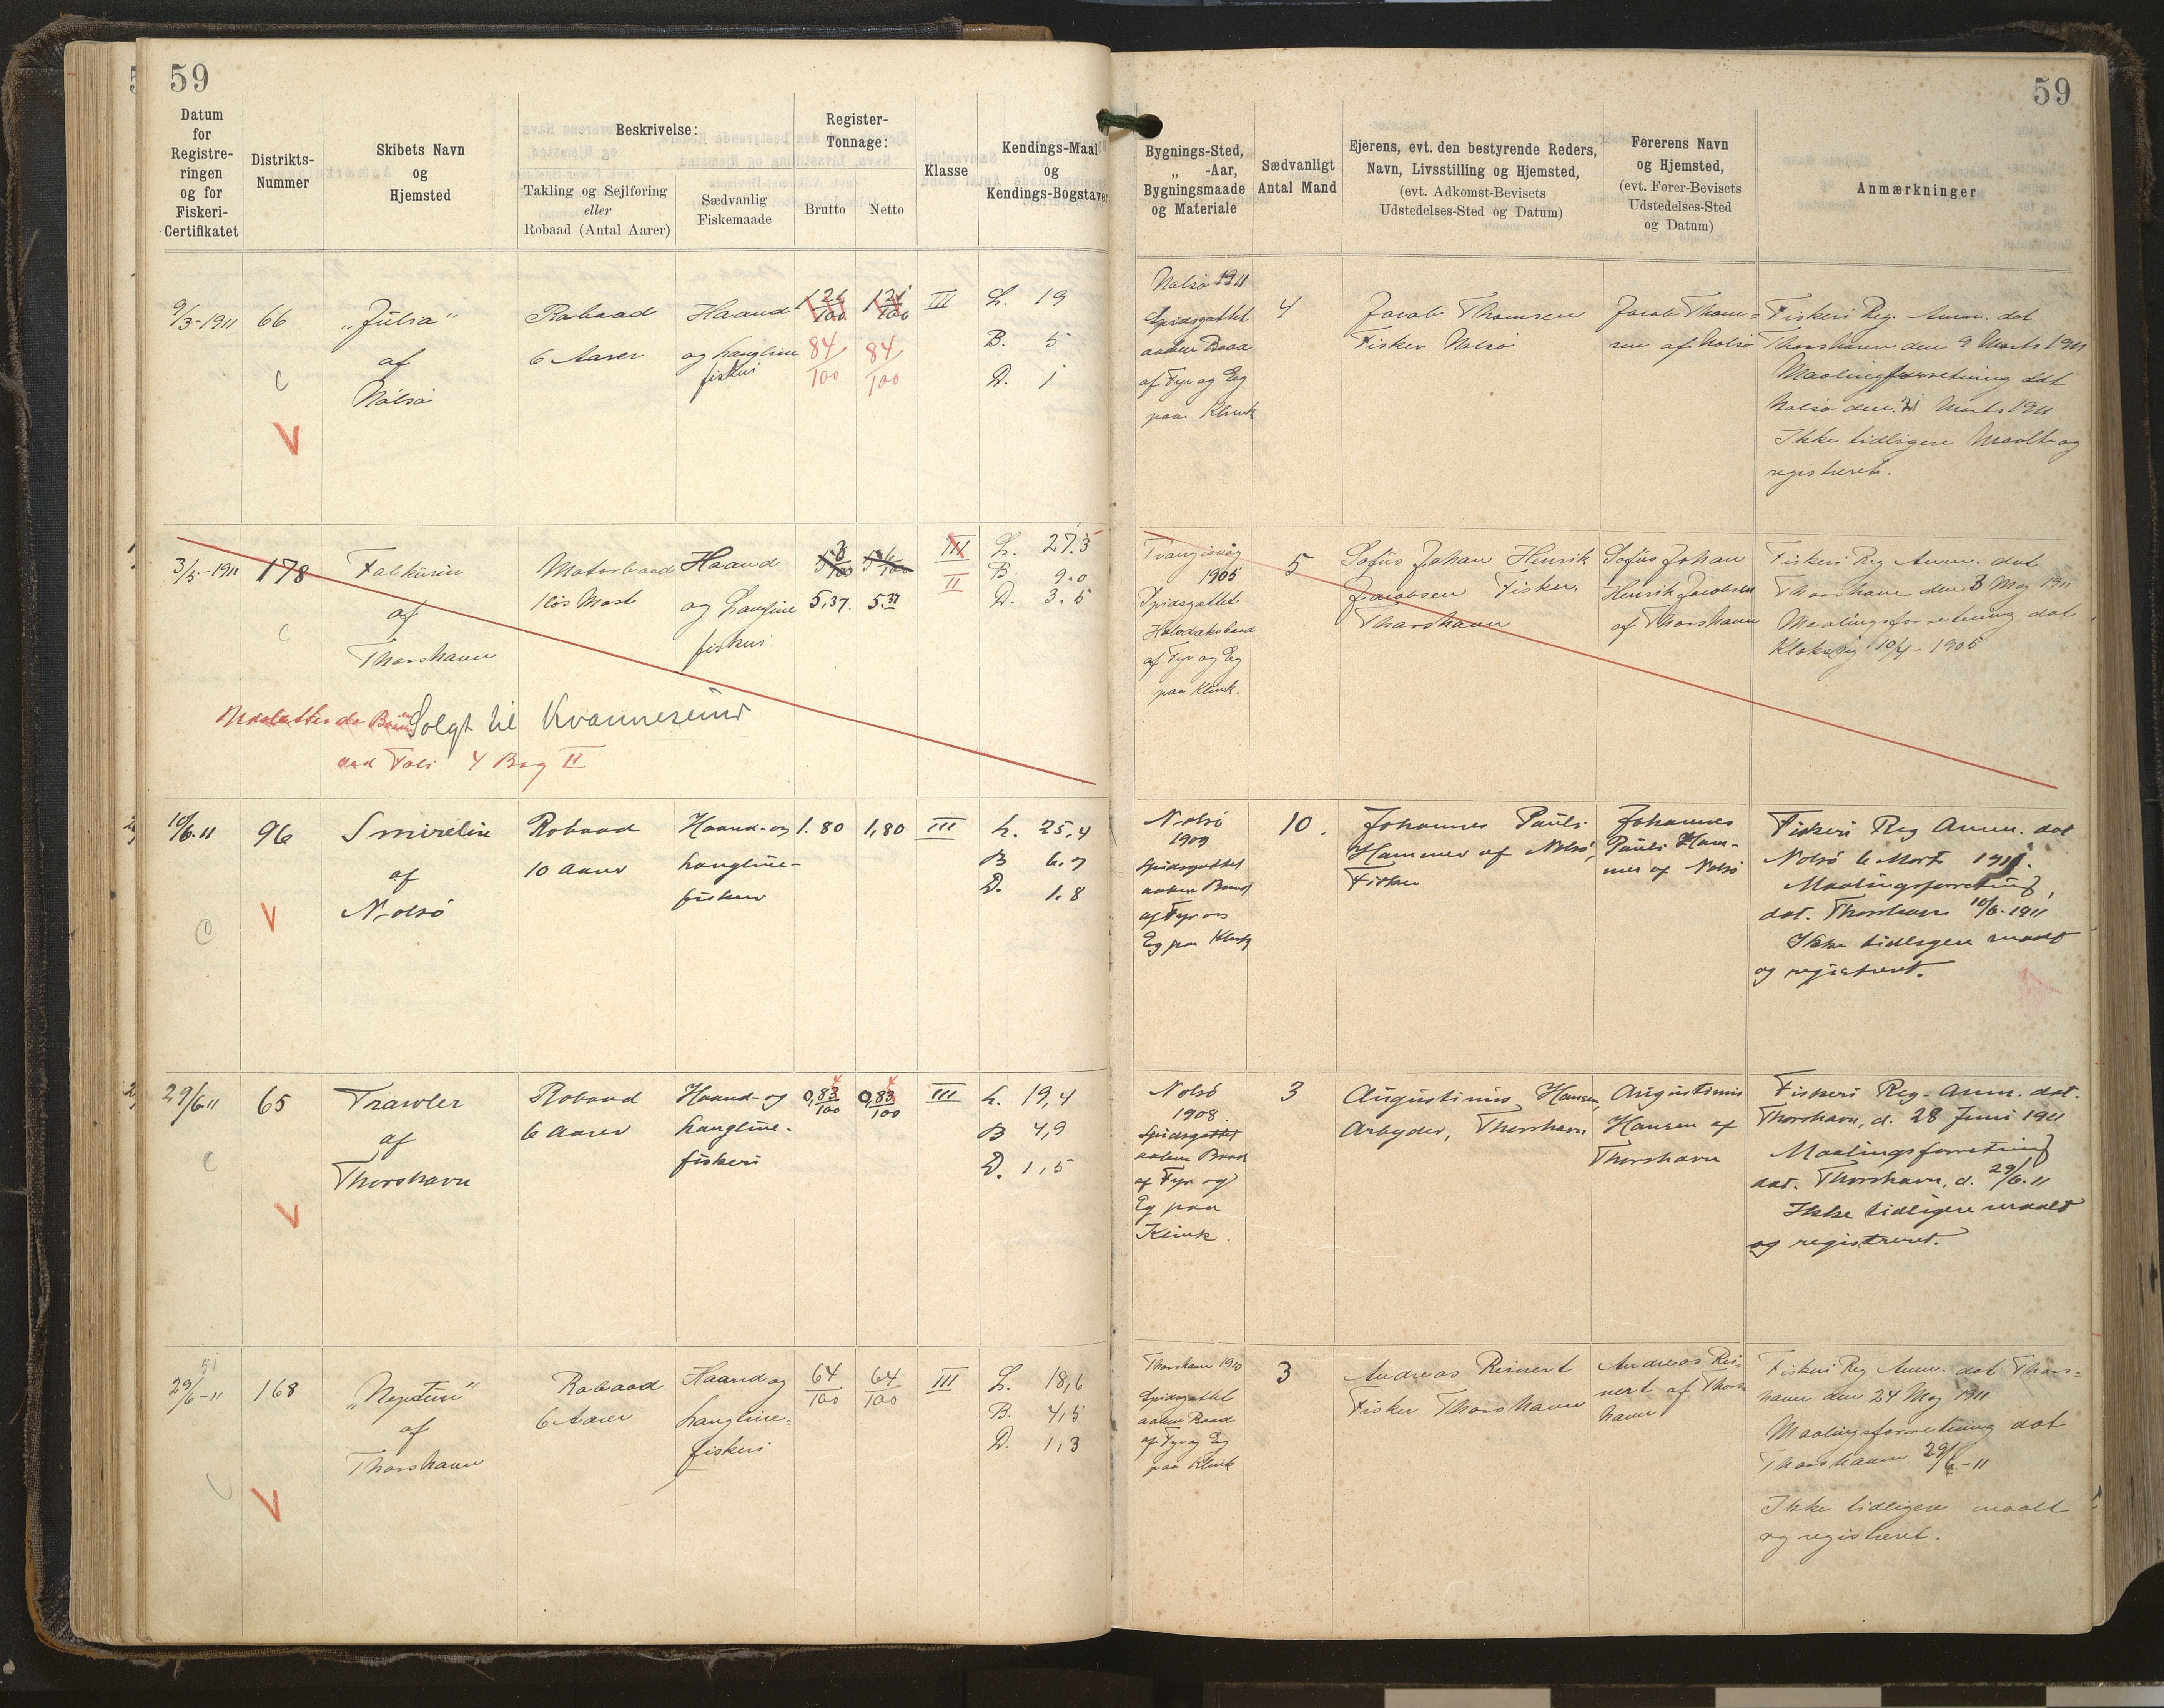 59
59
Datum
for
Registre-
ringen
og for
Fiskeri-
Certifikatet
Distrikts-
Nummer
Skibets Navn
og
Hjemsted
Beskrivelse:
Takling og Sejlføring
eller
Robaad (Antal Aarer)
Sædvanlig
Fiskemaade
Register-
Tonnage:
Brutto
Netto
Klasse
Kendings-Maal
og
Kendings-Bogstaver
Bygnings-Sted,
„ -Aar,
Bygningsmaade
og Materiale
Sædvanligt
Antal Mand
Ejerens, evt. den bestyrende Reders,
Navn, Livsstilling og Hjemsted,
(evt. Adkomst-Bevisets
Udstedelses-Sted og Datum)
Førerens Navn
og Hjemsted,
(evt. Fører-Bevisets
Udstedelses-Sted
og Datum)
Anmærkninger
9/3-1911
66
„Júlia“
af
Nólsö
Robaad
6 Aarer
Haand
og Langline
fiskeri
84/100
84/100
III
L. 19
B. 5
D. 1
Nolsö 1911
Spidsgattet
aaben Baad
af Fyr og Eg
paa Klink
4
Jacob Thomsen
Fisker Nolsö
Jacob Thom=
sen af Nolsö
Fiskeri Reg. Anm. dat.
Thorshavn den 9 Marts 1911
Maalingsforretning dat
Nolsö den Marts 1911
Ikke tidligere Maalt og
registreret.
3/5-1911
178
Falkurin
af
Thorshavn
Motorbaad
1 løs Mast
Haand
og Langline
fiskeri
5,37
5.37
III
II
L. 27.5
B. 9.0
D. 3.5
Solgt til Kvannesund
4 Bog II
Tvangisvåg
1905
Spidsgattet
Halvdæksbaad
af Fyr og Eg
paa Klink.
5
Sofus Johan Henrik
Jacobsen Fisker,
Thorshavn
Sofus Johan
Henrik Jacobsen
af Thorshavn
Fiskeri Reg Anm. dat
Thorshavn den 3 Maj 1911
Maalingsforretning dat
Klaksvig 10/4-1905
10/6.11
96
Smirelin
af
Nolsö
Robaad
10 Aarer
Haand- og
Langline-
fiskeri
1.80
1,80
III
L. 25,4
B 6.7
D. 1.8
Nolsö
1909
Spidsgattet
aaben Baad
af Fyr og
Eg paa Klink
10.
Johannes Pauli
Hammer af Nolsö,
Fisker
Johannes
Pauli Ham-
mer af Nolsö
Fiskeri Reg Anm. dat
Nolsö 6 Marts 1911.
Maalingsforretning,
dat. Thorshavn 10/6-1911
Ikke tidligere maalt
og registreret.
29/6-11
65
Trawler
af
Thorshavn
Robaad
6 Aarer
Haand- og
Langline-
fiskeri
0,83/100
0,83/100
III
L. 19,4
B 4,9
D. 1,5
Nolsö
1908.
Spidsgattet
aaben Baad
af Fyr og
Eg paa
Klink.
3
Augustinus Hansen,
Arbejder, Thorshavn
Augustinus
Hansen af
Thorshavn
Fiskeri Reg-Anm. dat.
Thorshavn, d. 28 Juni 1911
Maalingsforretning
dat. Thorshavn, d. 29/6.11
Ikke tidligere maalt
og registreret.
29/6-11
168
„Neptun“
af
Thorshavn
Robaad
6 Aarer
Haand og
Langline=
fiskeri
64/100
64/100
III
L. 18,6
B. 4,5
D. 1,3
Thorshavn 1910
Spidsgattet
aaben Baad
af Fyr og Eg
paa Klink
3
Andreas Reinert
Fisker Thorshavn
Andreas Rei=
nert af Thors
havn
Fiskeri Reg Anm. dat Thors=
havn den 24 Maj 1911
Maalingsforretning dat
Thorshavn 29/6-11
Ikke tidligere maalt
og registreret.